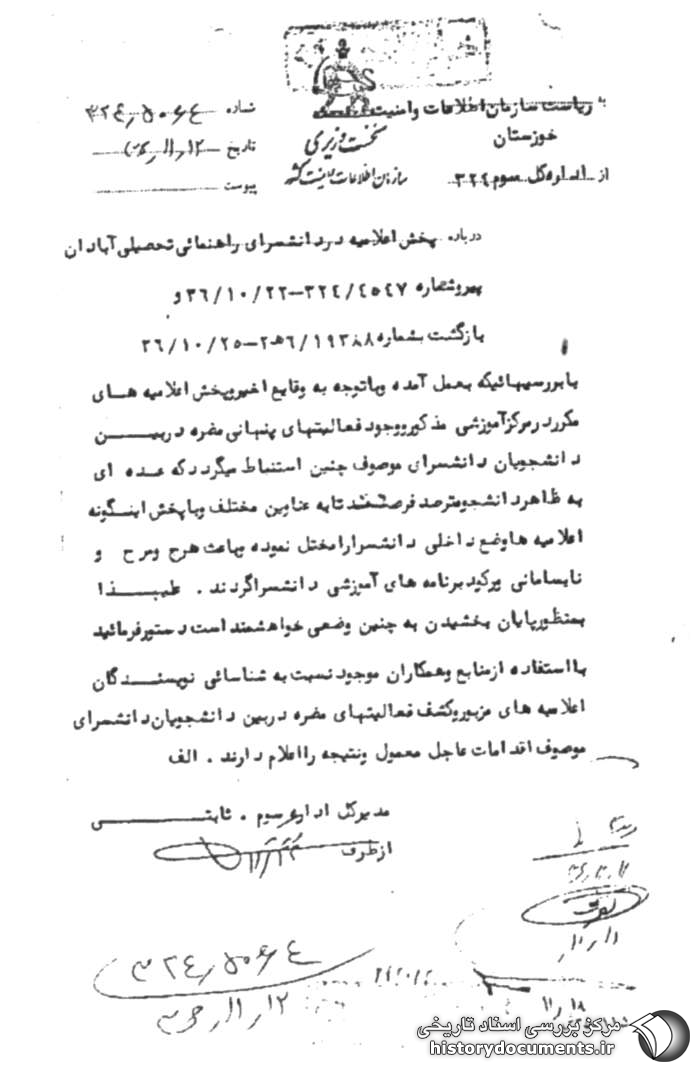 به ریاست سازمان اطلاعات وامنیت
خوزستان
از اداره کل سوم ۳۲۴
نخست وزیری
سازمان اطلاعات وامنیت کشور
شماره ۳۲۴٫۵۰۶۴
تاریخ ۱۲٫۱۱٫
پیوست
درباره پخش اعلامیه در دانشسرای راهنمائی تحصیلی آبادان
پیروشماره ۳۲۴/۴۵۴۷-۳۶/۱۰/۲۲ و
بازگشت بشماره ۶/۱۹۳۸۸ﻫ۲-۳۶/۱۰/۲۵
بابررسیهائیکه بعمل آمده وباتوجه به وقایع اخیروپخش اعلامیه های
مکرر در مرکزآموزشی مذکورووجود فعالیتهای پنهانی مضره دربین
دانشجویان دانشسرای موصوف چنین استنباط میگردد که عده ای
به ظاهردانشجومترصد فرصتند تابه عناوین مختلف وباپخش اینگونه
اعلامیه هاوضع داخلی دانشسرارامختل نموده وباعث هرج ومرج و
نابسامانی ورکود برنامه های آموزشی دانشسراگردند . علیهذا
بمنظورپایان بخشیدن به چنین وضعی خواهشمند است دستورفرمائید
بااستفاده ازمنابع وهمکاران موجود نسبت به شناسائی نویسندگان
اعلامیه های مزبوروکشف فعالیتهای مضره دربین دانشجویان دانشسرای
موصوف اقدامات عاجل معمول ونتیجه رااعلام دارند . الف
مدیرکل اداره سوم . ثابتی
ازطرف
۱۱/۱۲
۱۱٫۱۸
۳۲۴٫۵۰۶۴
۱۲٫۱۱٫۳۶
مرکز بررسی اسناد تاریخی
historydocuments.ir